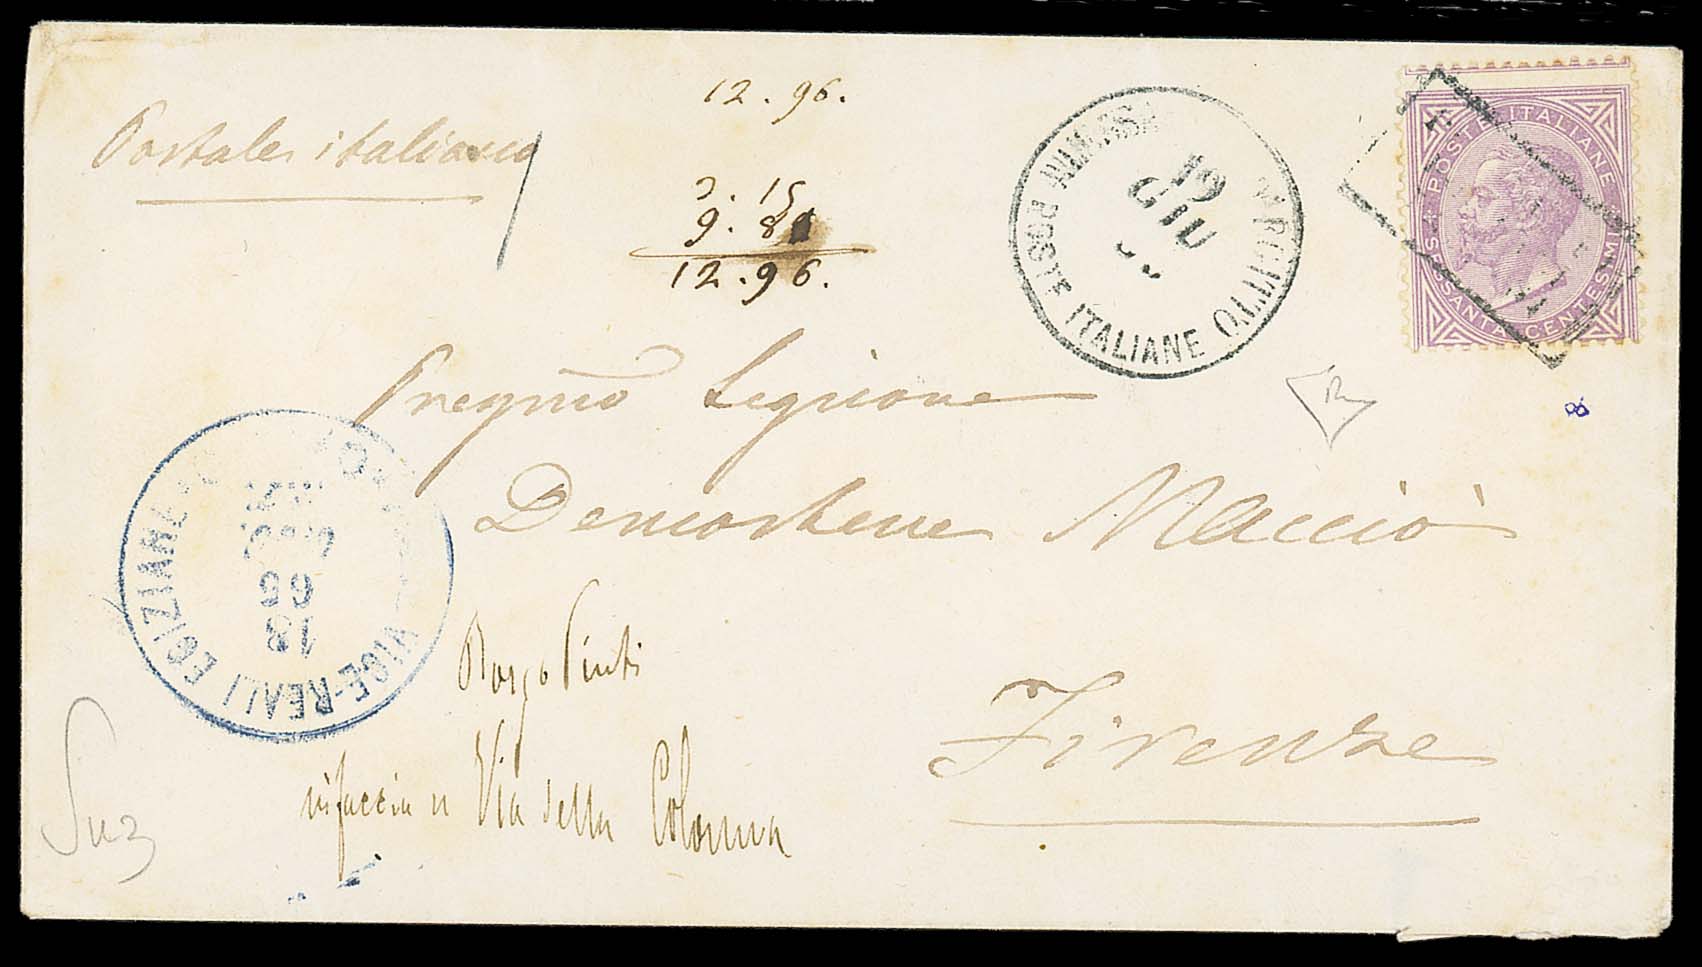 12.96.
Postale italiano
3.15
9.81
12.96.
POSTE ITALIANE
19
GIU
POSTE ITALIANE
SESSANTA CENTESIMI
Pregmo Signore
Demostene Macciò
VICE-REALI EGIZIANE
65
18
Borgo Pinti
rifaccia a Via della Colonna
Firenze
Suz